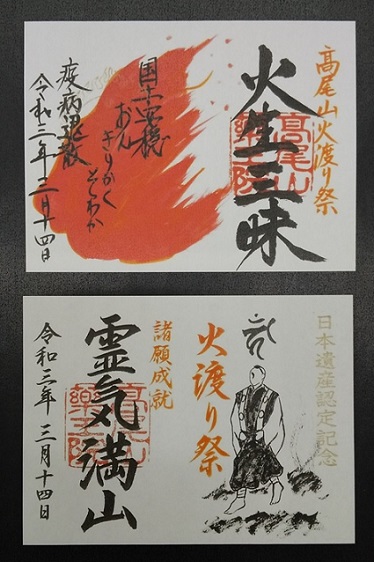 髙尾山火渡り祭
火生三昧
髙尾山
藥王院
国土安穏
おん
きりかく
そわか
疫病退散
令和三年三月十四日
日本遺産認定記念
火渡り祭
諸願成就
霊気満山
髙尾山
藥王院
令和三年 三月十四日